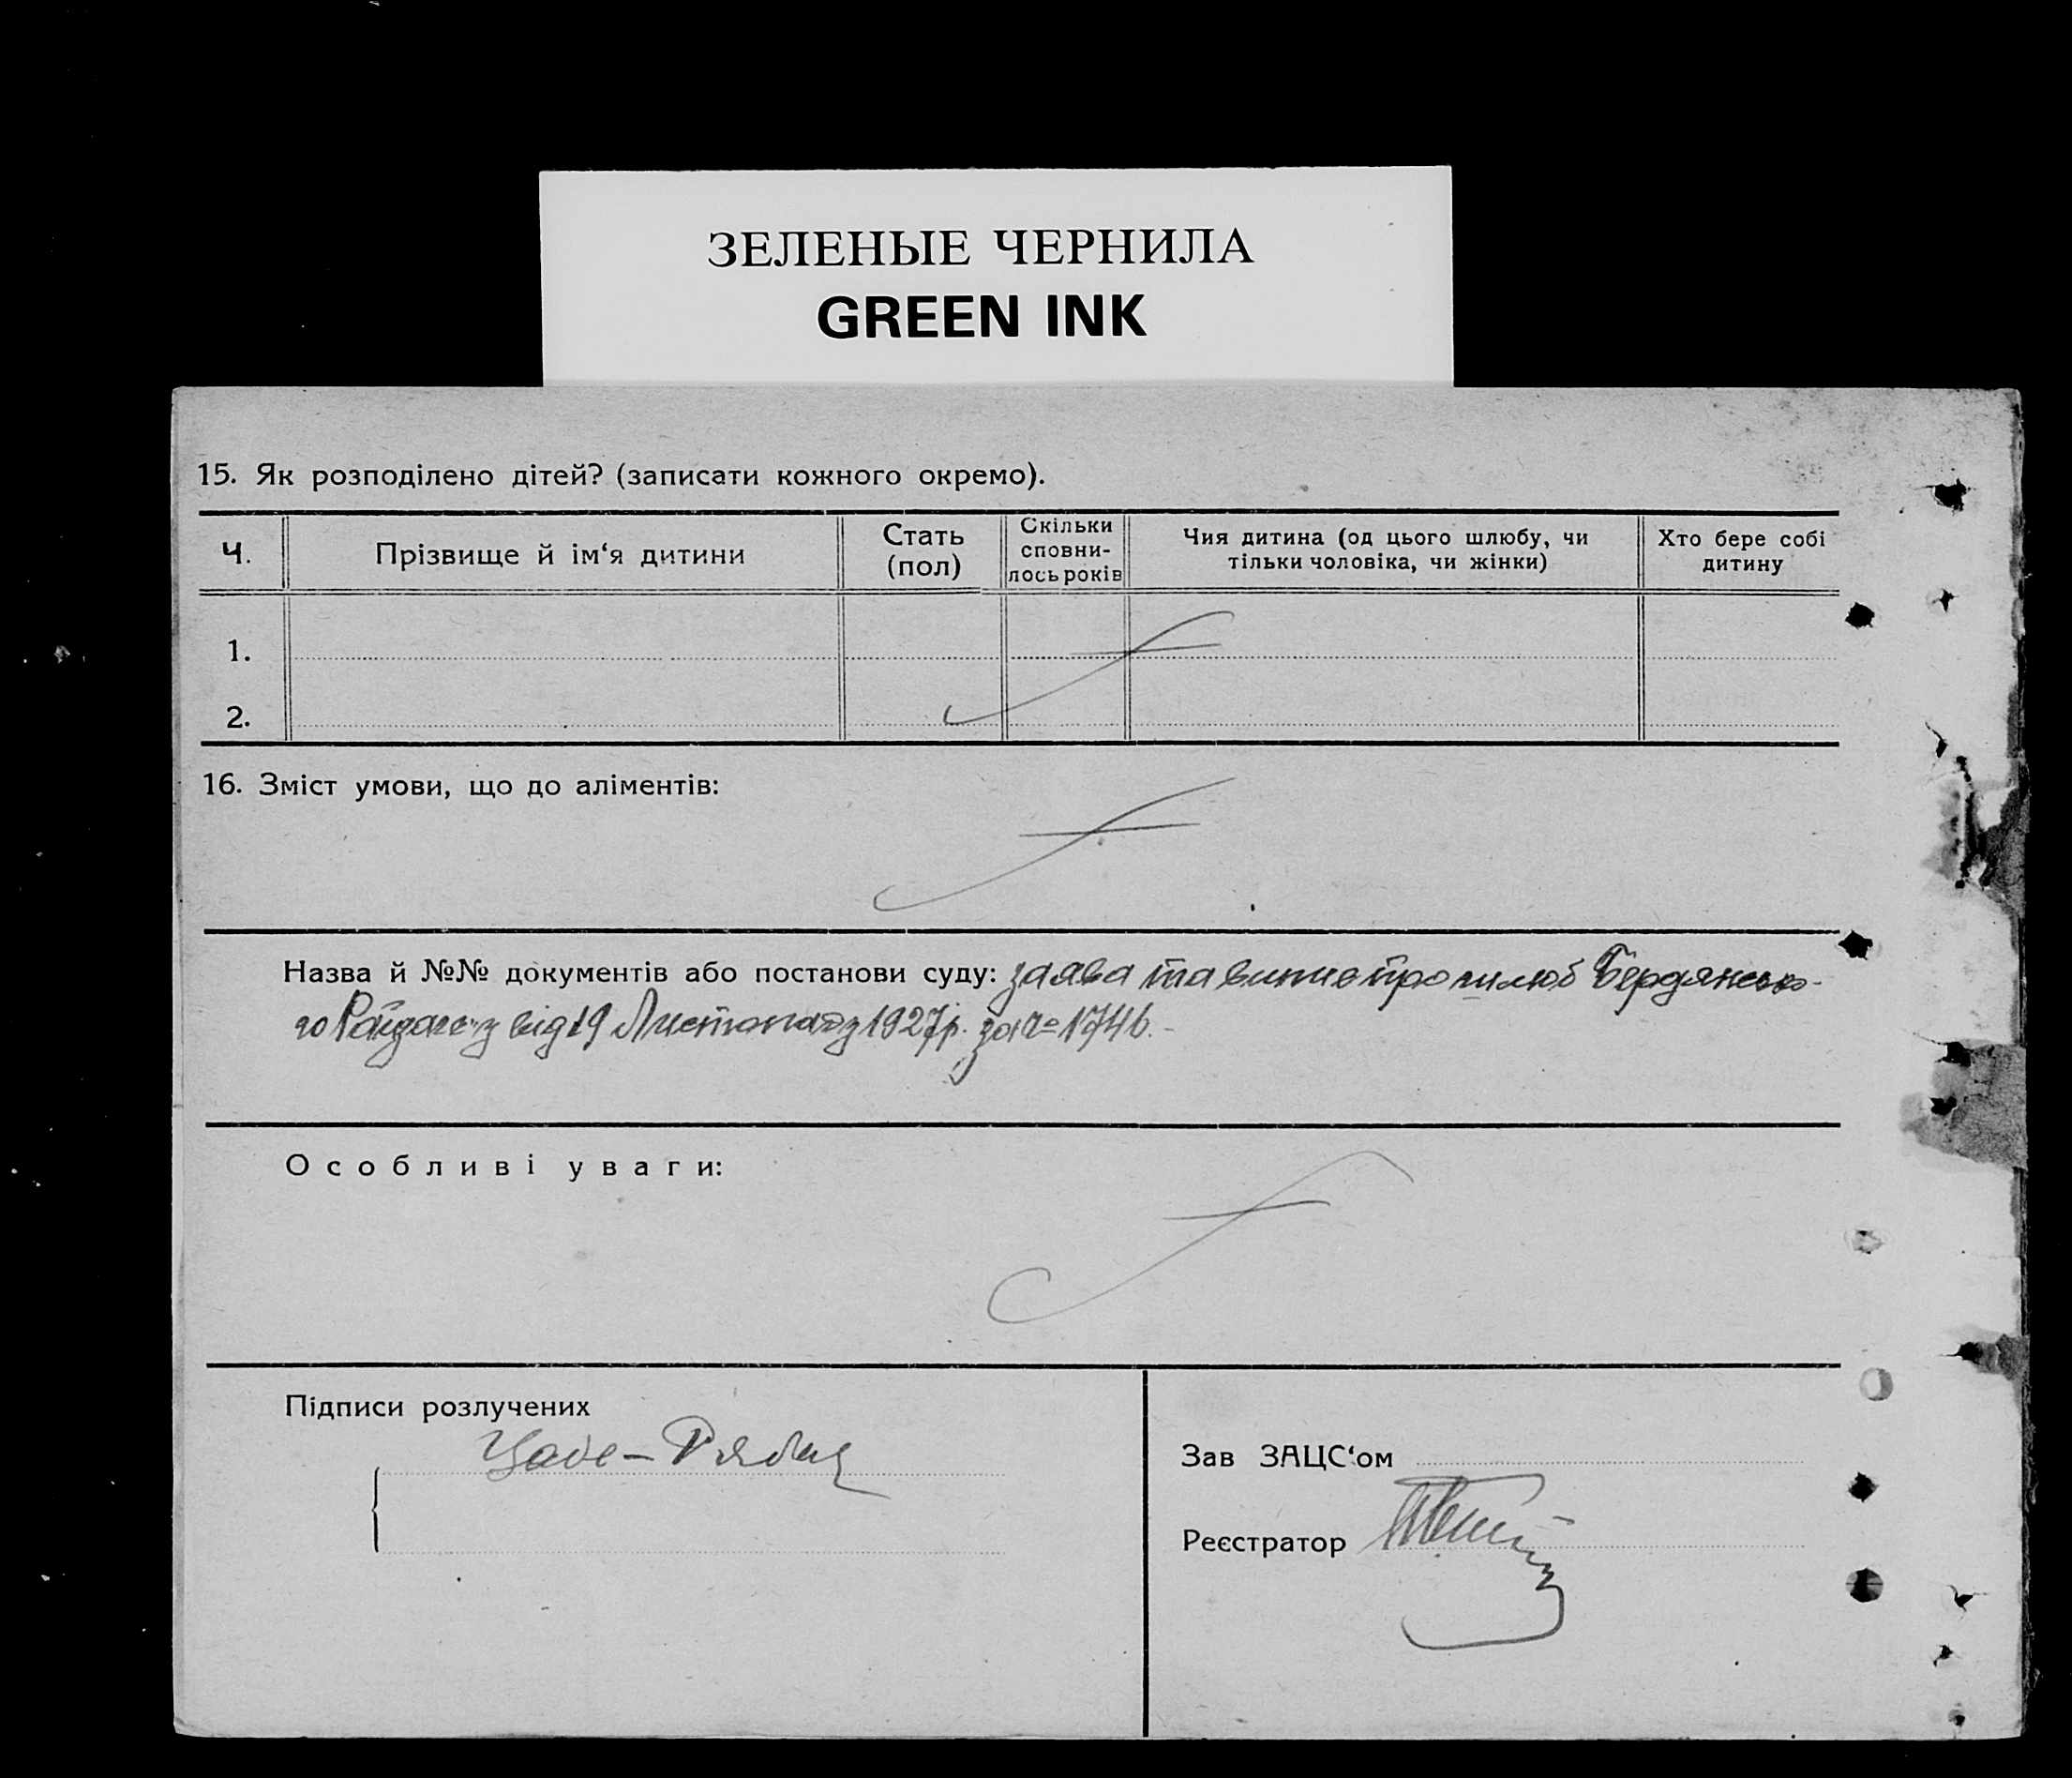 ЗЕЛЕНЫЕ ЧЕРНИЛА
GREEN INK
15. Як розподілено дітей? (записати кожного окремо).
Ч. Прізвище й ім‘я дитини Стать (пол) Скільки сповни-лось років Чия дитина (од цього шлюбу, чи тільки чоловіка, чи жінки) Хто бере собі дитину
1.
2.
16. Зміст умови, що до аліментів:
Назва й №№ документів або постанови суду: заява та випис про шлюб Бердянсько-
го від 19 Листопада 1927р. за № 1746.-
Особливі уваги:
Підписи розлучених
Зав ЗАЦС‘ом
Реєстратор